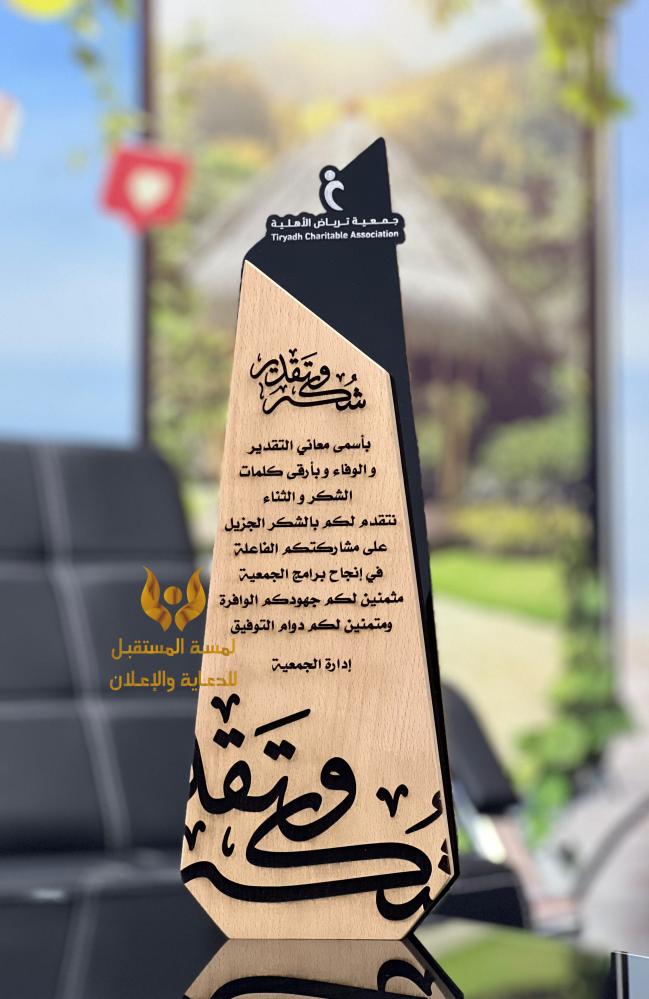 جمعية ترياض الأهلية
Tiryadh Charitable Association
شكر وتقدير
بأسمى معاني التقدير
والوفاء وبأرقى كلمات
الشكر والثناء
نتقدم لكم بالشكر الجزيل
على مشاركتكم الفاعلة
في إنجاح برامج الجمعية
مثمنين لكم جهودكم الوافرة
ومتمنين لكم دوام التوفيق
إدارة الجمعية
لمسة المستقبل
للدعاية والإعلان
شكر وتقد